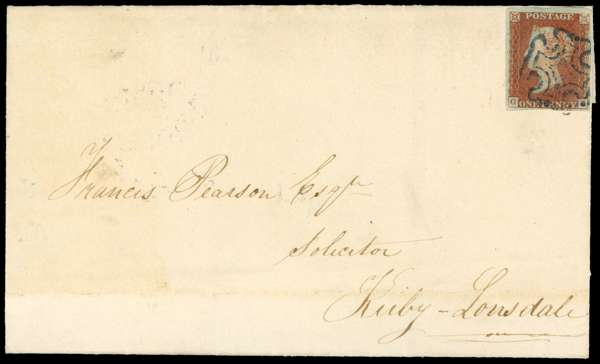 POSTAGE
ONE PENNY
Francis Pearson Esqr
Solicitor
Kirby-Lonsdale